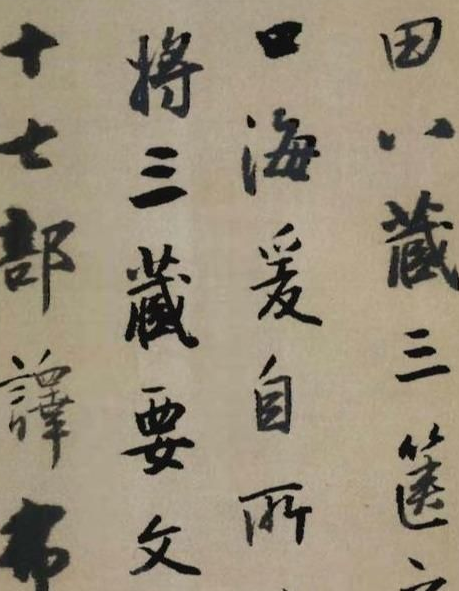 田八藏三篋
口海爰自所
將三藏要文
十七部譯布